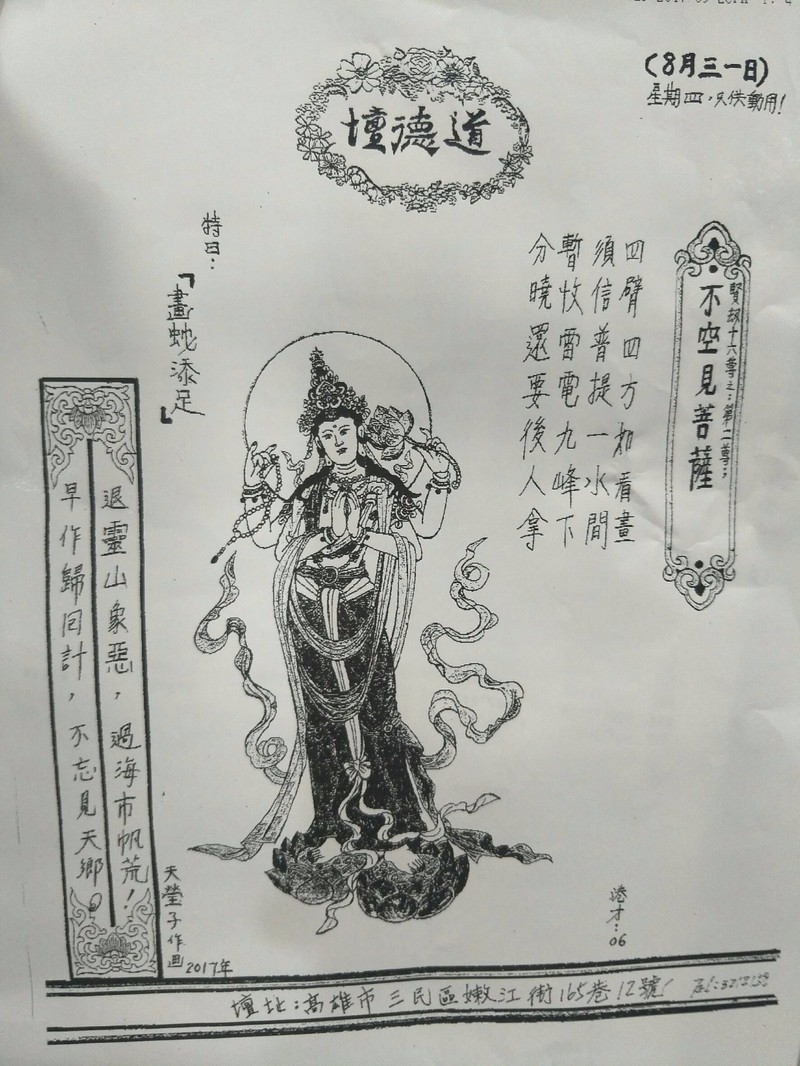 (8月三一日)
星期四，只供動用!
道德壇
賢劫十六尊之：第二尊；
不空見菩薩
四臂四方如看畫
須信普提一水間
暫收雷電九峰下
分曉還要後人拿
特曰：
「畫蛇添足」
退靈山象惡，過海市帆荒！
早作歸回計，不忘見天鄉。
天瑩子作画
2017年
港才：06
壇址：高雄市三民區嫩江街165巷12號!